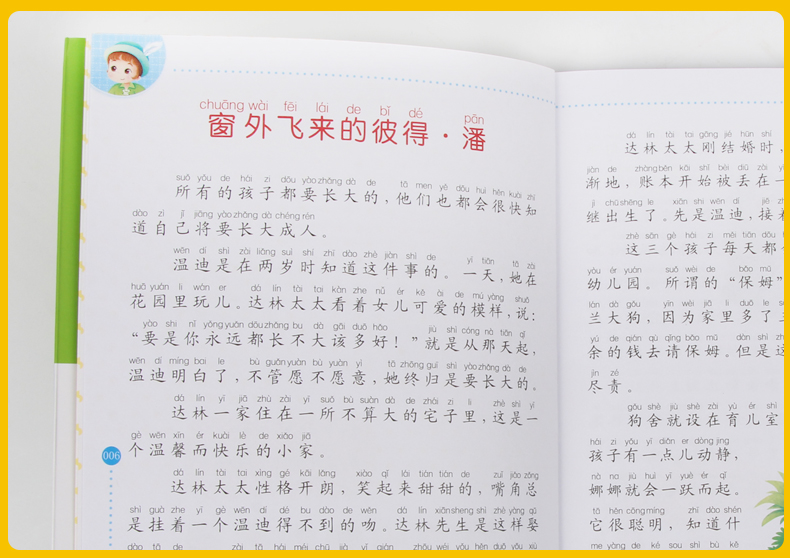 chuāng wài fēi lái de bǐ dé pān
窗外飞来的彼得·潘
suǒ yǒu de hái zi dōu yào zhǎng dà de tā men yě dōu huì hěn kuài zhī
所有的孩子都要长大的，他们也都会很快知
dào zì jǐ jiāng yào zhǎng dà chéng rén
道自己将要长大成人。
wēn dí shì zài liǎng suì shí zhī dào zhè jiàn shì de yì tiān tā zài
温迪是在两岁时知道这件事的。一天，她在
huā yuán lǐ wán er dá lín tài tai kàn zhe nǚ ér kě ài de mú yàng shuō
花园里玩儿。达林太太看着女儿可爱的模样，说：
yào shi nǐ yǒng yuǎn dōu zhǎng bu dà gāi duō hǎo jiù shì cóng nà tiān qǐ
“要是你永远都长不大该多好！”就是从那天起，
wēn dí míng bai le bù guǎn yuàn bú yuàn yì tā zhōng guī shì yào zhǎng dà de
温迪明白了，不管愿不愿意，她终归是要长大的。
dá lín yì jiā zhù zài yì suǒ bú suàn dà de zhái zi lǐ zhè shì yí
达林一家住在一所不算大的宅子里，这是一
gè wēn xīn ér kuài lè de xiǎo jiā
个温馨而快乐的小家。
006
dá lín tài tai xìng gé kāi lǎng xiào qǐ lái tián tián de zuǐ jiǎo zǒng
达林太太性格开朗，笑起来甜甜的，嘴角总
shì guà zhe yí gè wēn dí dé bu dào de wěn dá lín xiān sheng shì zhè yàng qǔ
是挂着一个温迪得不到的吻。达林先生是这样娶
dá lín tài tai gāng jié hūn shí
达林太太刚结婚时，
jiàn de zhàng běn kāi shǐ bèi diū zài yí
渐地，账本开始被丢在一
jì chū shēng le xiān shì wēn dí jiē
继出生了。先是温迪，接着
zhè sān gè hái zi měi tiān dōu
这三个孩子每天都
yòu ér yuán suǒ wèi de bǎo mǔ
幼儿园。所谓的“保姆”
lán dà gǒu yīn wèi jiā lǐ duō le
兰大狗，因为家里多了
yú de qián qù qǐng bǎo mǔ dàn shì
余的钱去请保姆。但是
jìn zé
尽责。
gǒu shè jiù shè zài yù ér shì
狗舍就设在育儿室
hái zi yǒu yì diǎn er dòng jìng
孩子有一点儿动静，
nà na jiù huì yí yuè ér qǐ
娜娜就会一跃而起。
tā hěn cōng míng zhī dào shén
它很聪明，知道什